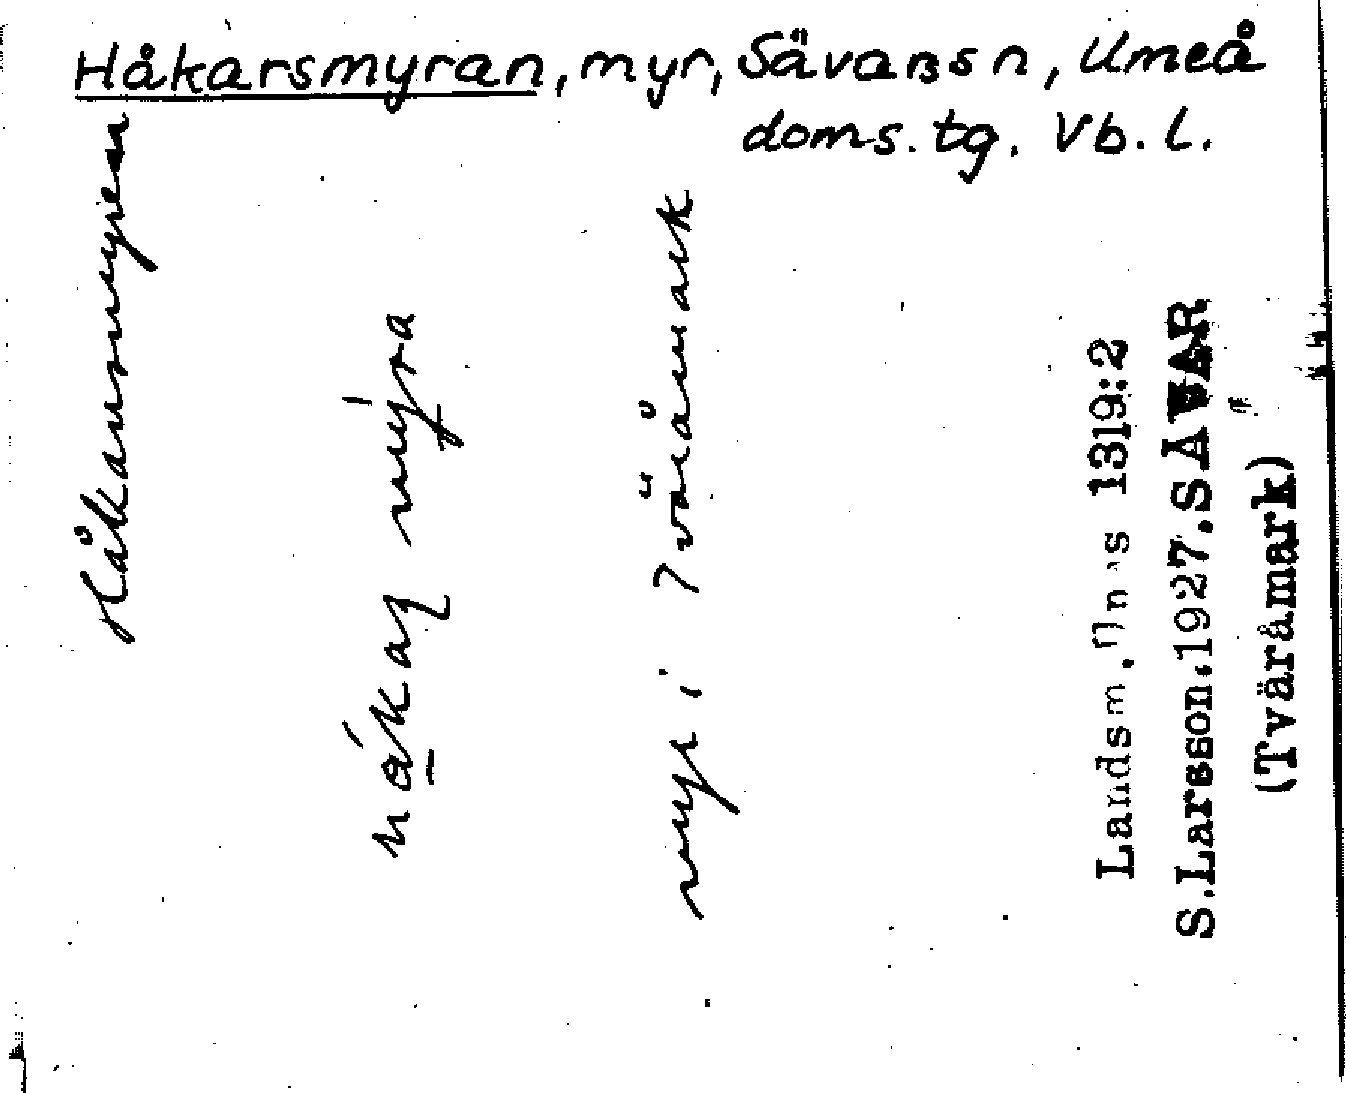 Håkarsmyran, myr, Sävars sn, Umeå
doms. tg. Vb. l.
Håkarsmyran
myra
myr i Tväråmark
Landsm. 1319:2
S.Larsson.1927.SÄVAR
(Tväråmark)